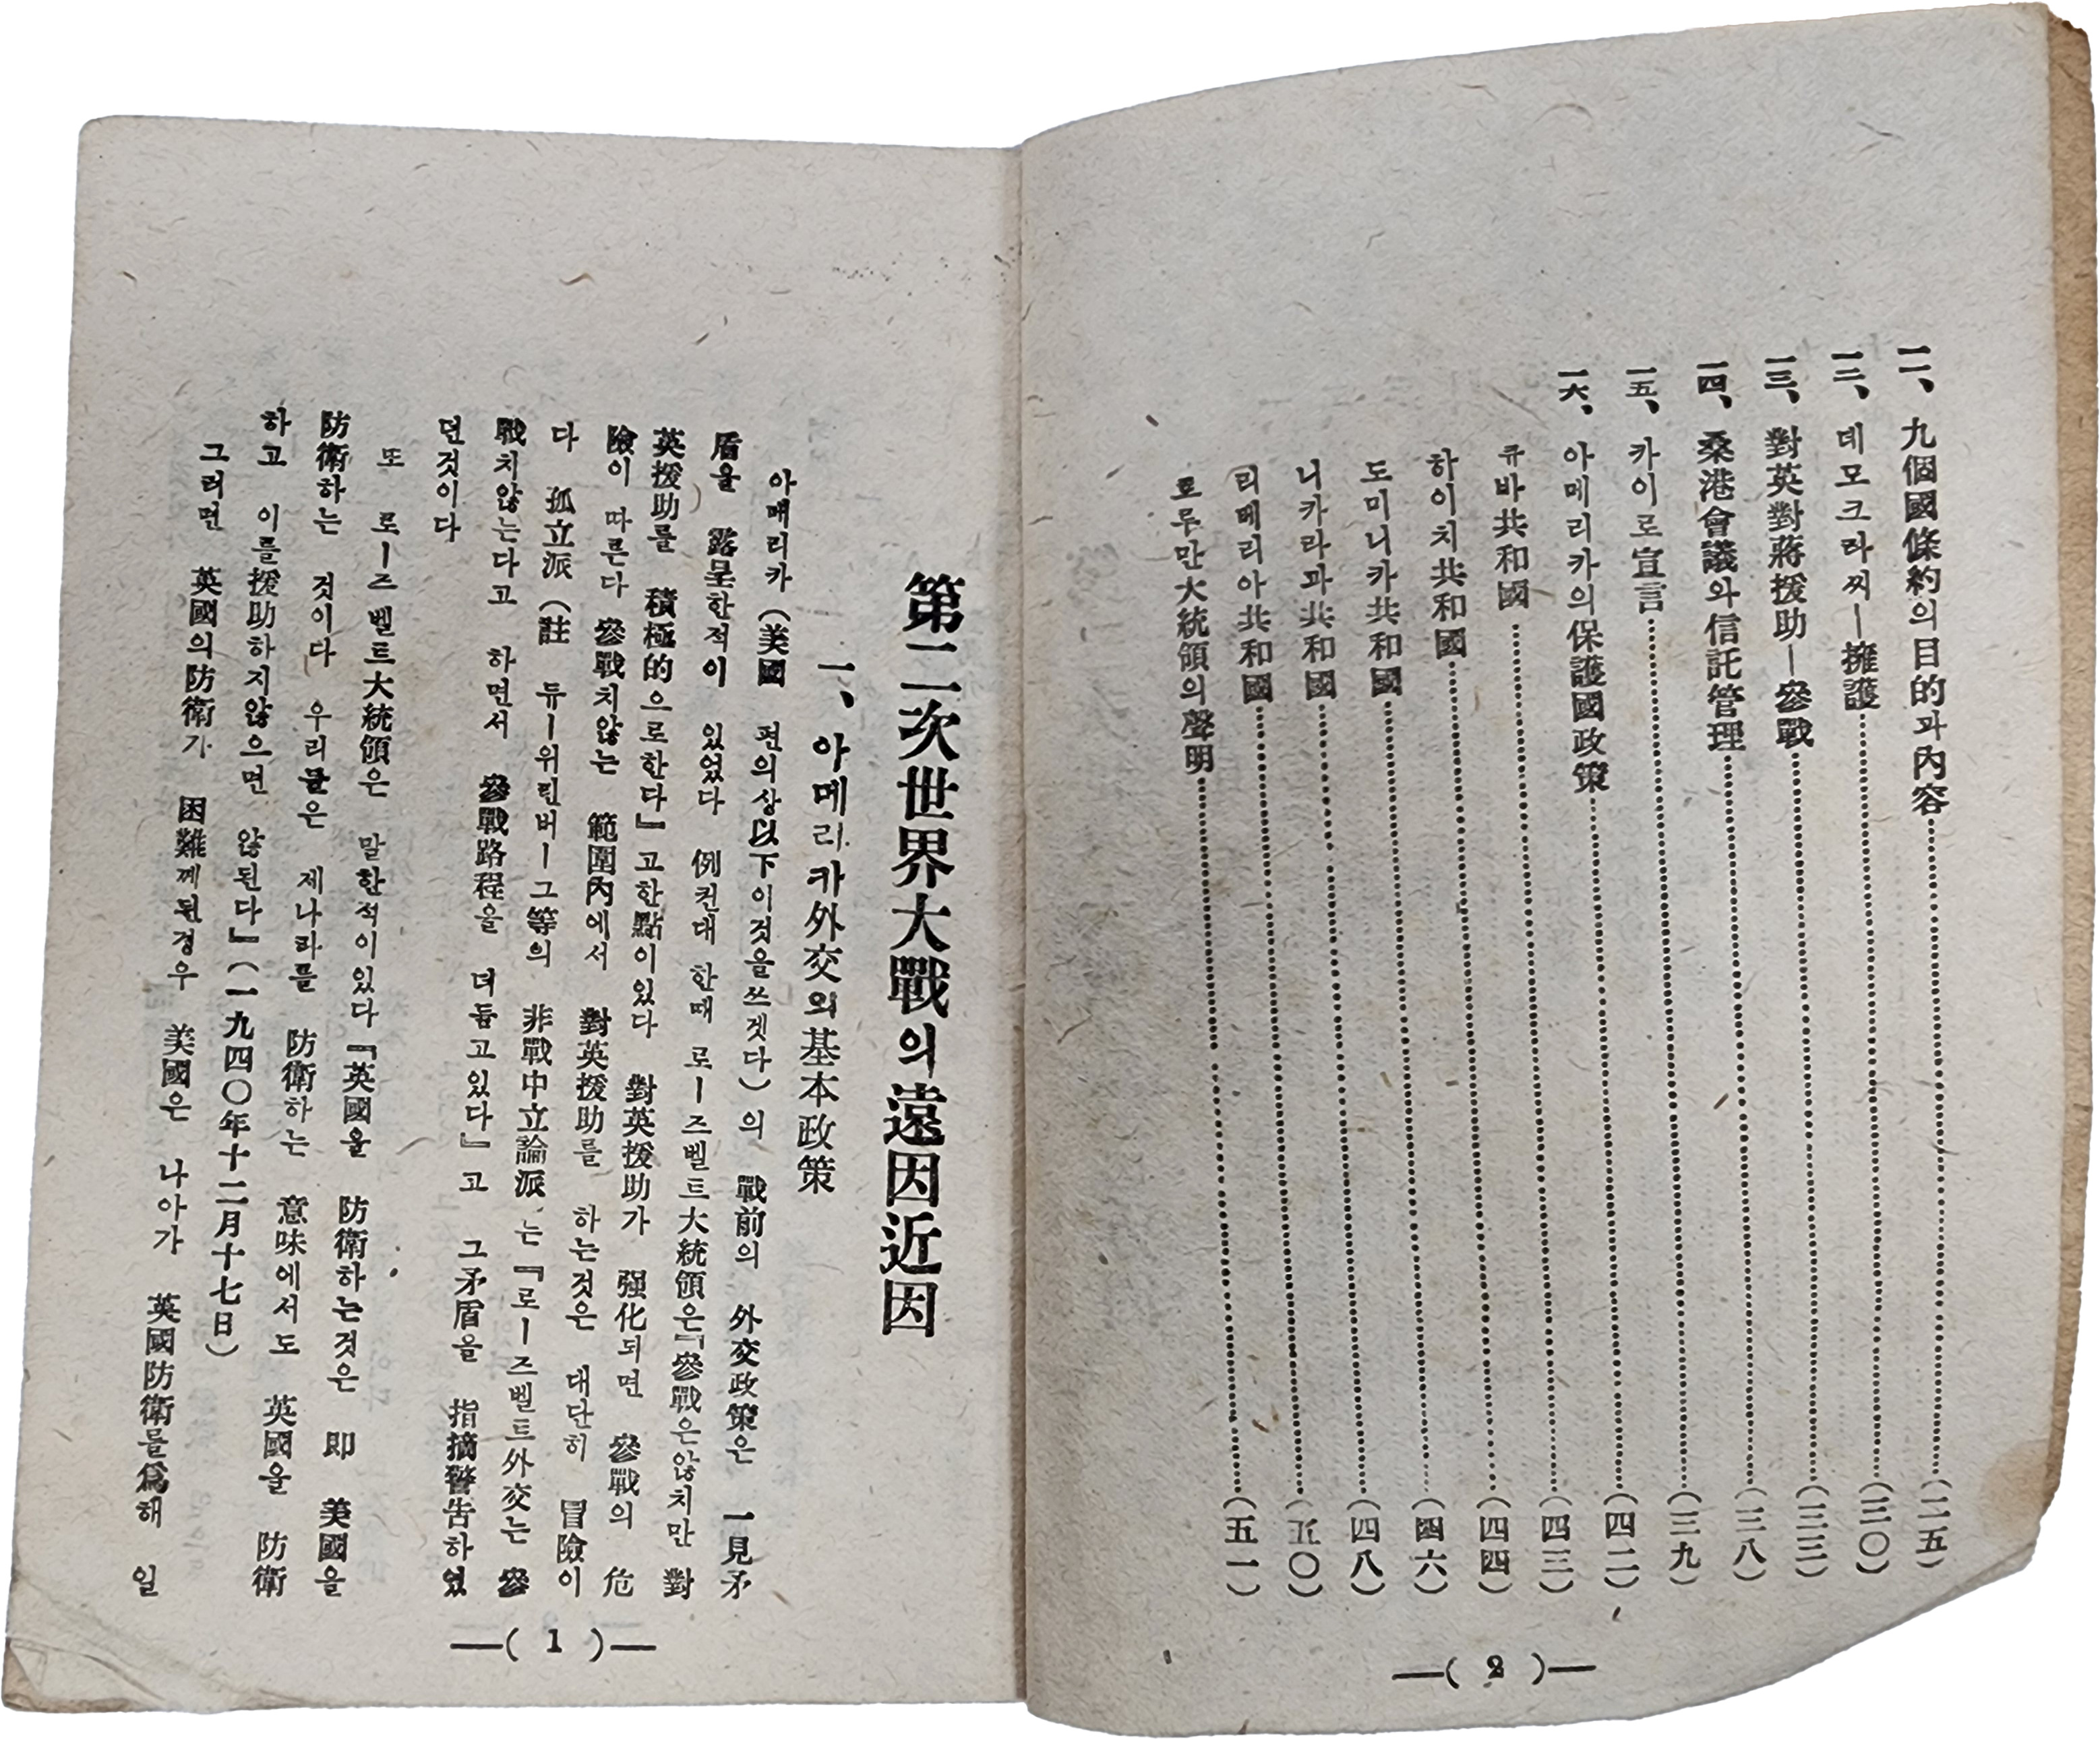 一一、九個國條約의目的과內容……(二五)
一二、데모크라씨ー擁護……(三〇)
一三、對英對蔣援助ー參戰……(三三)
一四、桑港會議와信託管理……(三八)
一五、카이로宣言……(三九)
一六、아메리카의保護國政策……(四二)
큐바共和國……(四三)
하이치共和國……(四四)
도미니카共和國……(四六)
니카라과共和國……(四八)
리베리아共和國……(五〇)
트루만大統領의聲明……(五一)
—( 2 )—
第二次世界大戰의遠因近因
一、아메리카外交의基本政策
아메리카(美國 편의상以下이것을쓰겟다)의 戰前의 外交政策은 一見矛
盾을 露呈한적이 있었다 例컨대 한때 로ー즈벨트大統領은『參戰은않치만 對
英援助를 積極的으로한다』고한點이있다 對英援助가 强化되면 參戰의 危
險이 따른다 參戰치않는 範圍內에서 對英援助를 하는것은 대단히 冒險이
다 孤立派(註 듀ー위린버ー그等의 非戰中立論派)는『로ー즈벨트外交는 參
戰치않는다고 하면서 參戰路程을 더듬고있다』고 그矛盾을 指摘警告하였
던것이다
또 로ー즈벨트大統領은 말한적이있다『英國을 防衛하는것은 即 美國을
防衛하는 것이다 우리들은 제나라를 防衛하는 意味에서도 英國을 防衛
하고 이를援助하지않으면 않된다』(一九四〇年十二月十七日)
그러면 英國의防衛가 困難께된경우 美國은 나아가 英國防衛를爲해 일
—( 1 )—